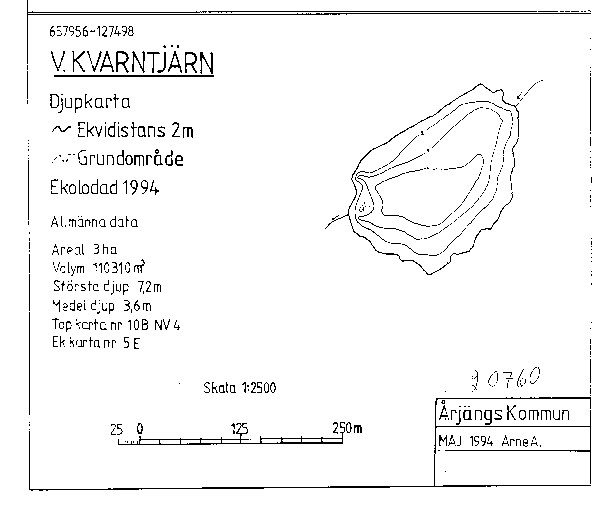 657956-127498
V. KVARNTJÄRN
Djupkarta
Ekvidistans 2m
Grundområde
Ekolodad 1994
Allmänna data
Areal 3 ha
Volym 110310 m³
Största djup 7,2 m
Medeldjup 3,6 m
Topkarta nr 10B NV 4
Ek karta nr 5 E
Skala 1:2500
25 0 125 250m
20760
Årjängs Kommun
MAJ 1994 Arne A.